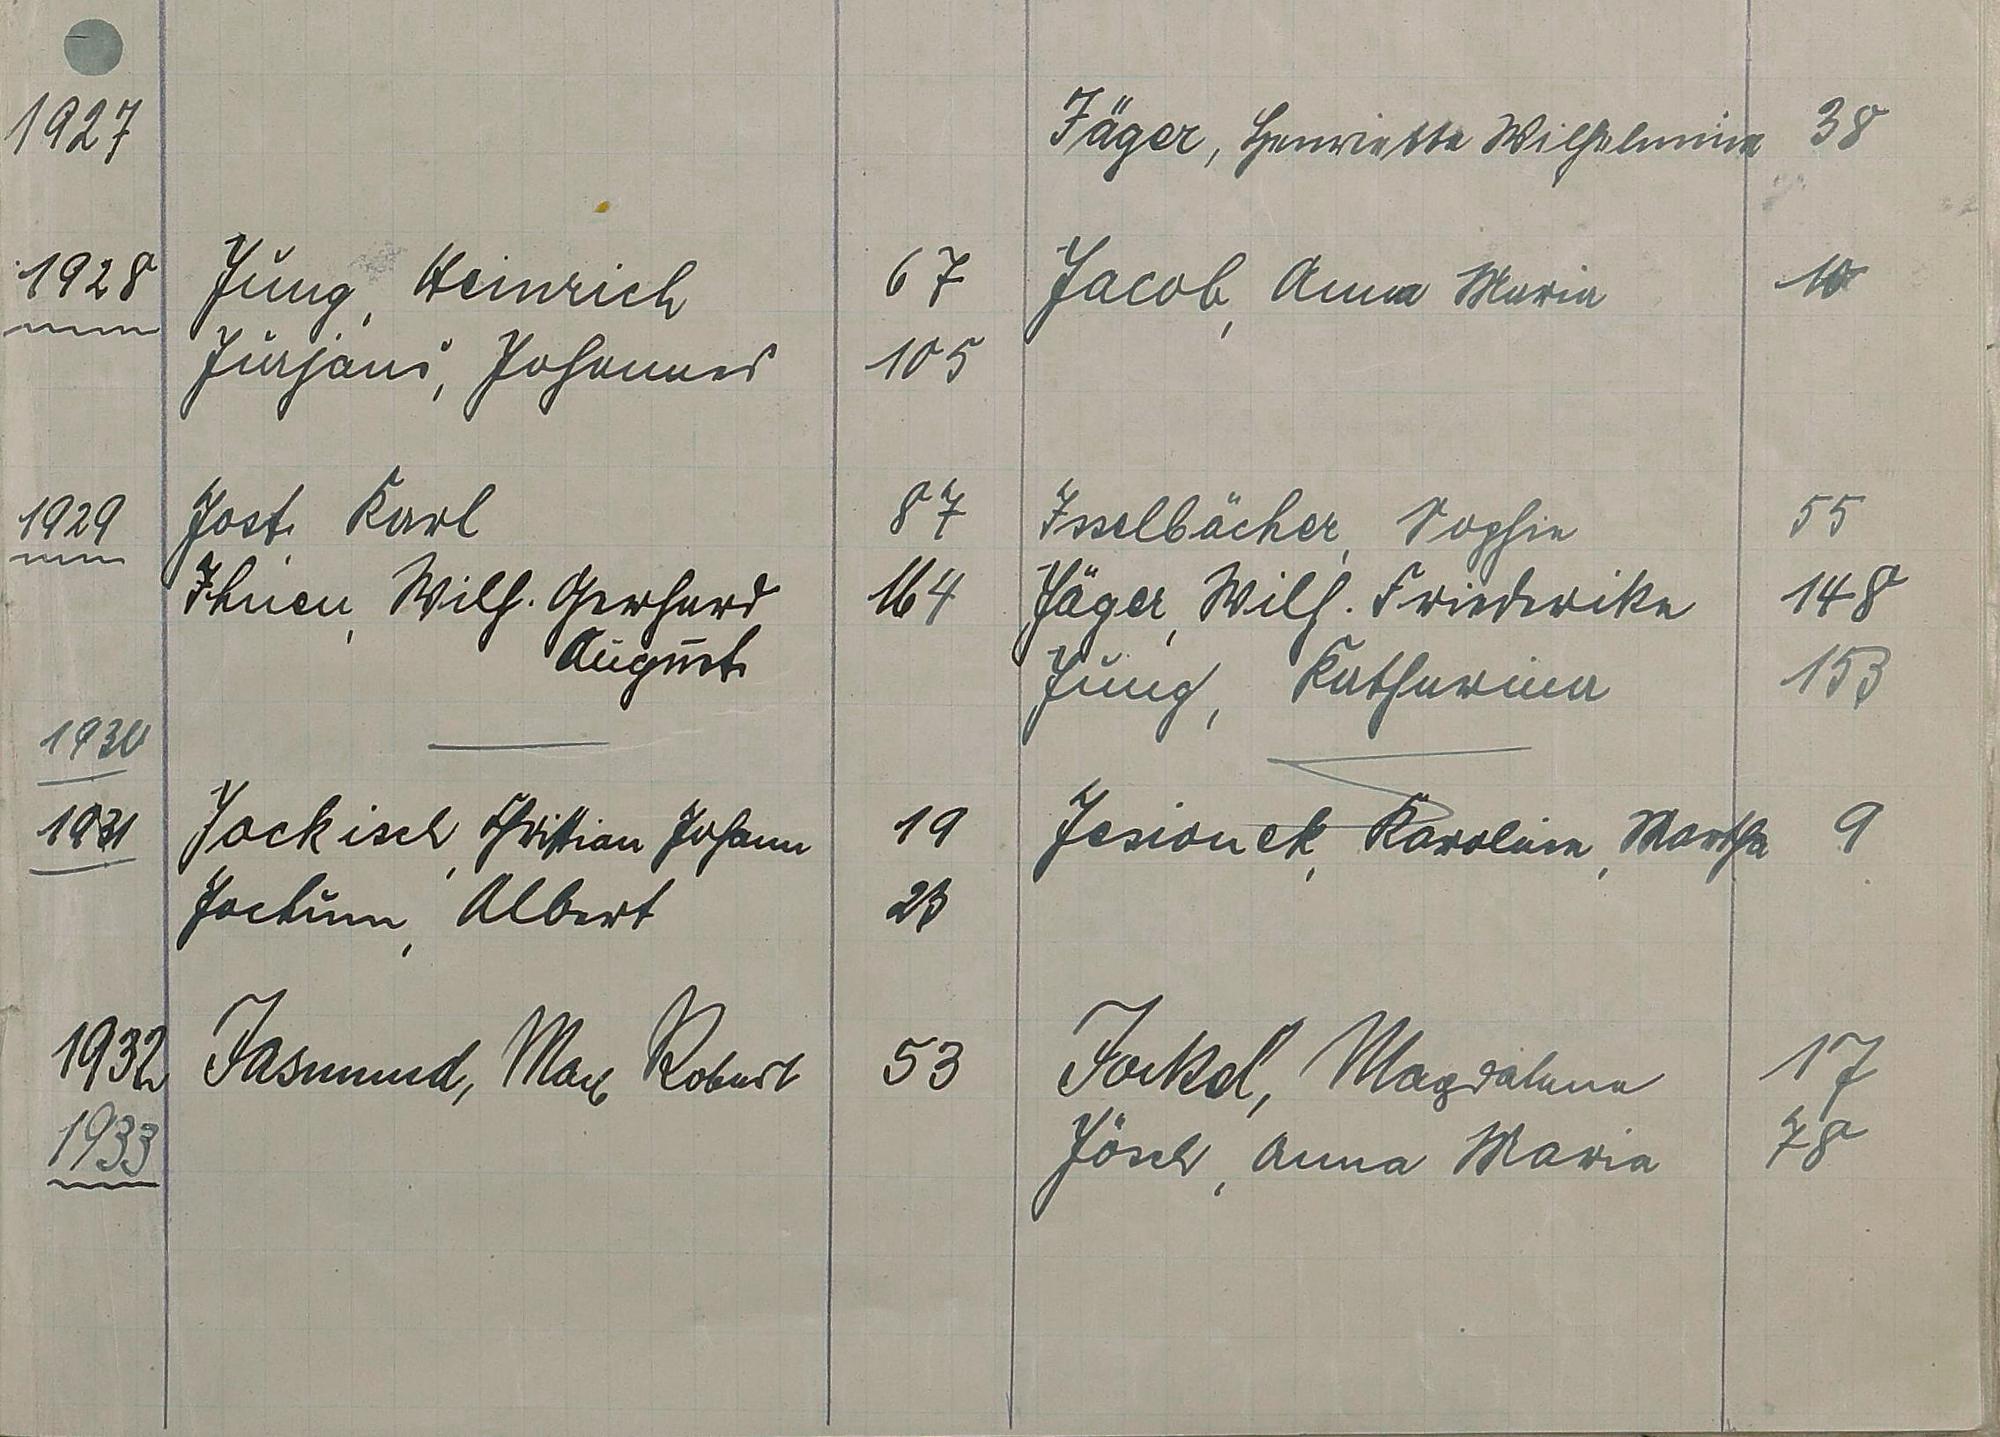 1927 Jäger, Henriette Wilhelmine 38
1928 Jung, Heinrich 67 Jacob, Anna Maria 10
Jürjans, Johannes 105
1929 Jost, Karl 87 Isselbächer, Sophie 55
Ihnen, Wilh. Gerhard 164 Jäger, Wilh. Friederike 148
August
Jung, Katharina 153
1930
1931 Jockisch, Christian Johann 19 Jesionek, Karoline, Martha 9
Jochum, Albert 23
1932 Jasmund, Max Robert 53 Jockel, Magdalena 17
1933 Jösch, Anna Maria 78